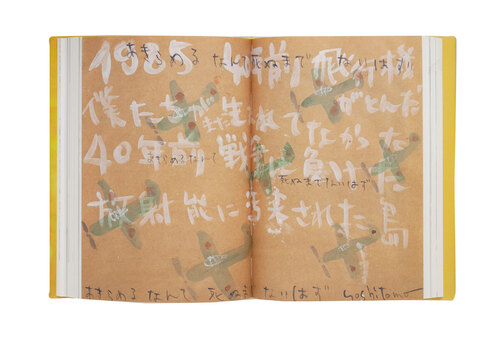 あきらめるなんて死ぬまでないはず
1985 年前 飛行機
がとんだ
僕たちがまだ生まれてなかった
40年前 戦争に負けた
あきらめるなんて
死ぬまでないはず
放射能に汚染された島
あきらめるなんて 死ぬまでないはず yoshitomo